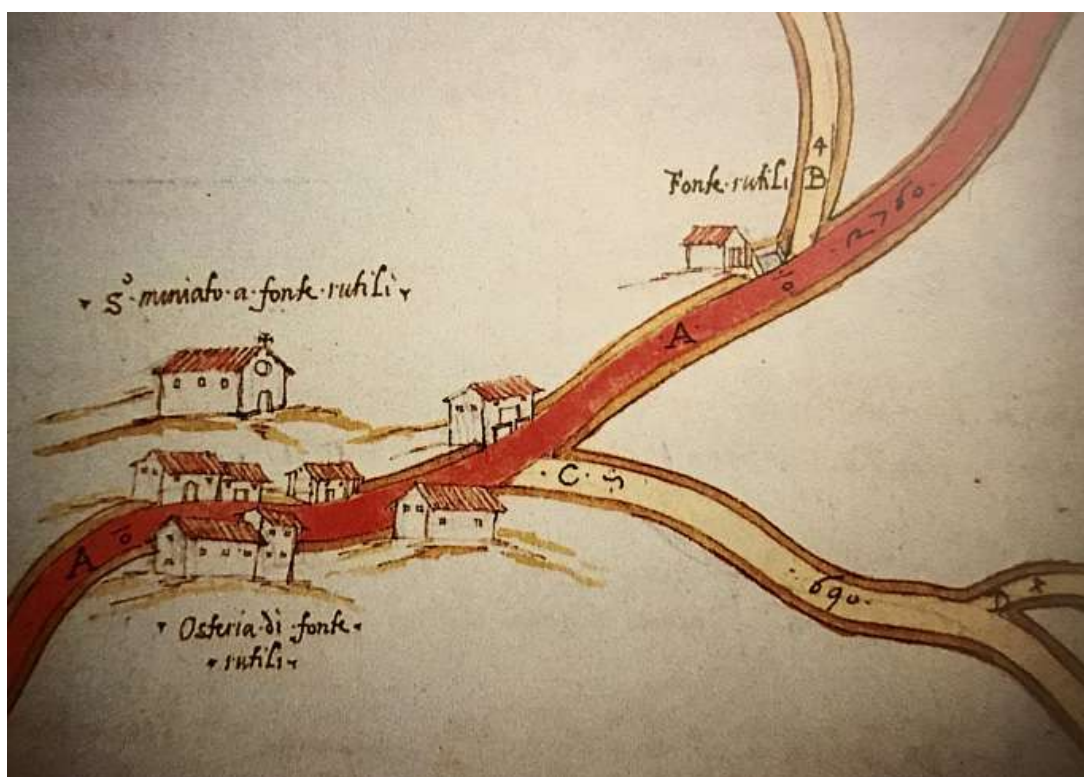 4
Fonte·rutili B
2760.
S.º miniato·a·fonte·rutili
A
C
A
690.
D 4
Osteria·di·fonte·
rutili